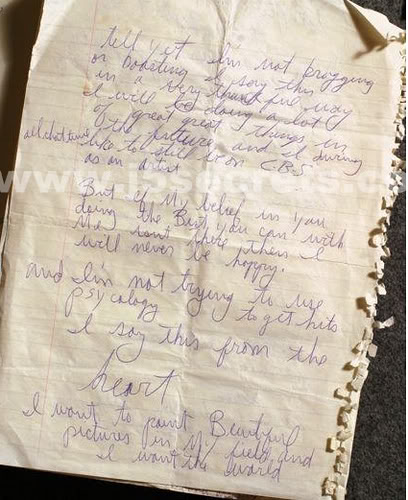 tell yet I'm not bragging
or boasting I say this
in a very thankful way
I will be doing a lot
of great great things in
the future and I during
all that time like to still be on CBS
as an artist
But if my belief in you
doing the Best you can with
me isn't there then I
will never be happy.
and I'm not trying to use
psycology to get hits
I say this from the
heart
I want to paint Beautiful
pictures in my field and
I want the world